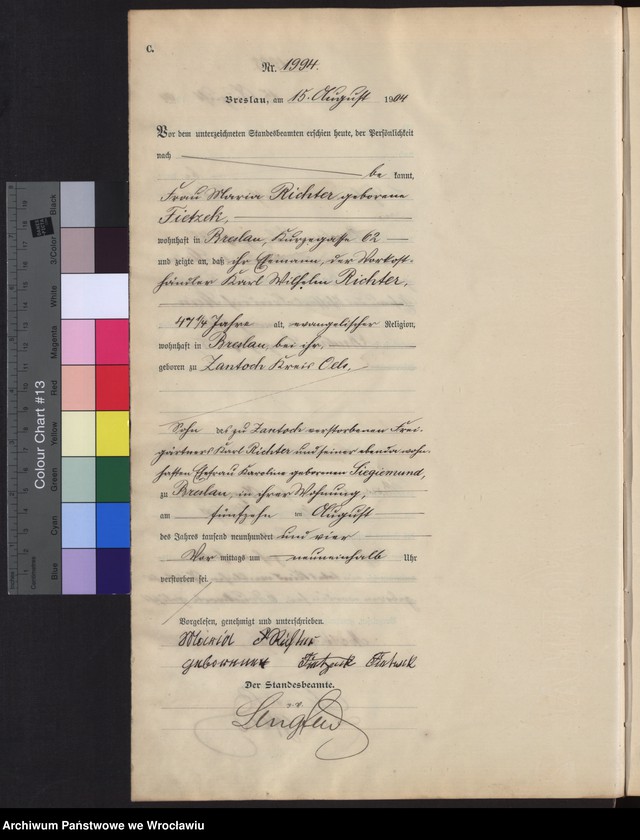 C.
Nr. 1994.
Breslau, am 15. August 1904
Vor dem unterzeichneten Standesbeamten erschien heute, der Persönlichkeit
nach
be kannt,
Frau Maria Richter geborene
Tietzek,
wohnhaft in Breslau, Kurzegasse 62
und zeigte an, daß ihr Ehemann, der Vorkost-
händler Karl Wilhelm Richter,
47 1/4 Jahre alt, evangelischer Religion,
wohnhaft in Breslau, bei ihr,
geboren zu Zantoch Kreis Oels,
Sohn des zu Zantoch verstorbenen Frei-
gärtners Karl Richter und seiner ebenda wohn-
haften Ehefrau Karoline geborenen Siegismund,
zu Breslau, in ihrer Wohnung,
am fünfzehn ten August
des Jahres tausend neunhundert und vier
Vor mittags um neuneinhalb Uhr
verstorben sei.
Vorgelesen, genehmigt und unterschrieben.
Maria Richter
geborene
Der Standesbeamte.
Colour Chart #13
Blue
Cyan
Green
Yellow
Red
Magenta
White
3/Color
Black
Centimetres
Archiwum Państwowe we Wrocławiu